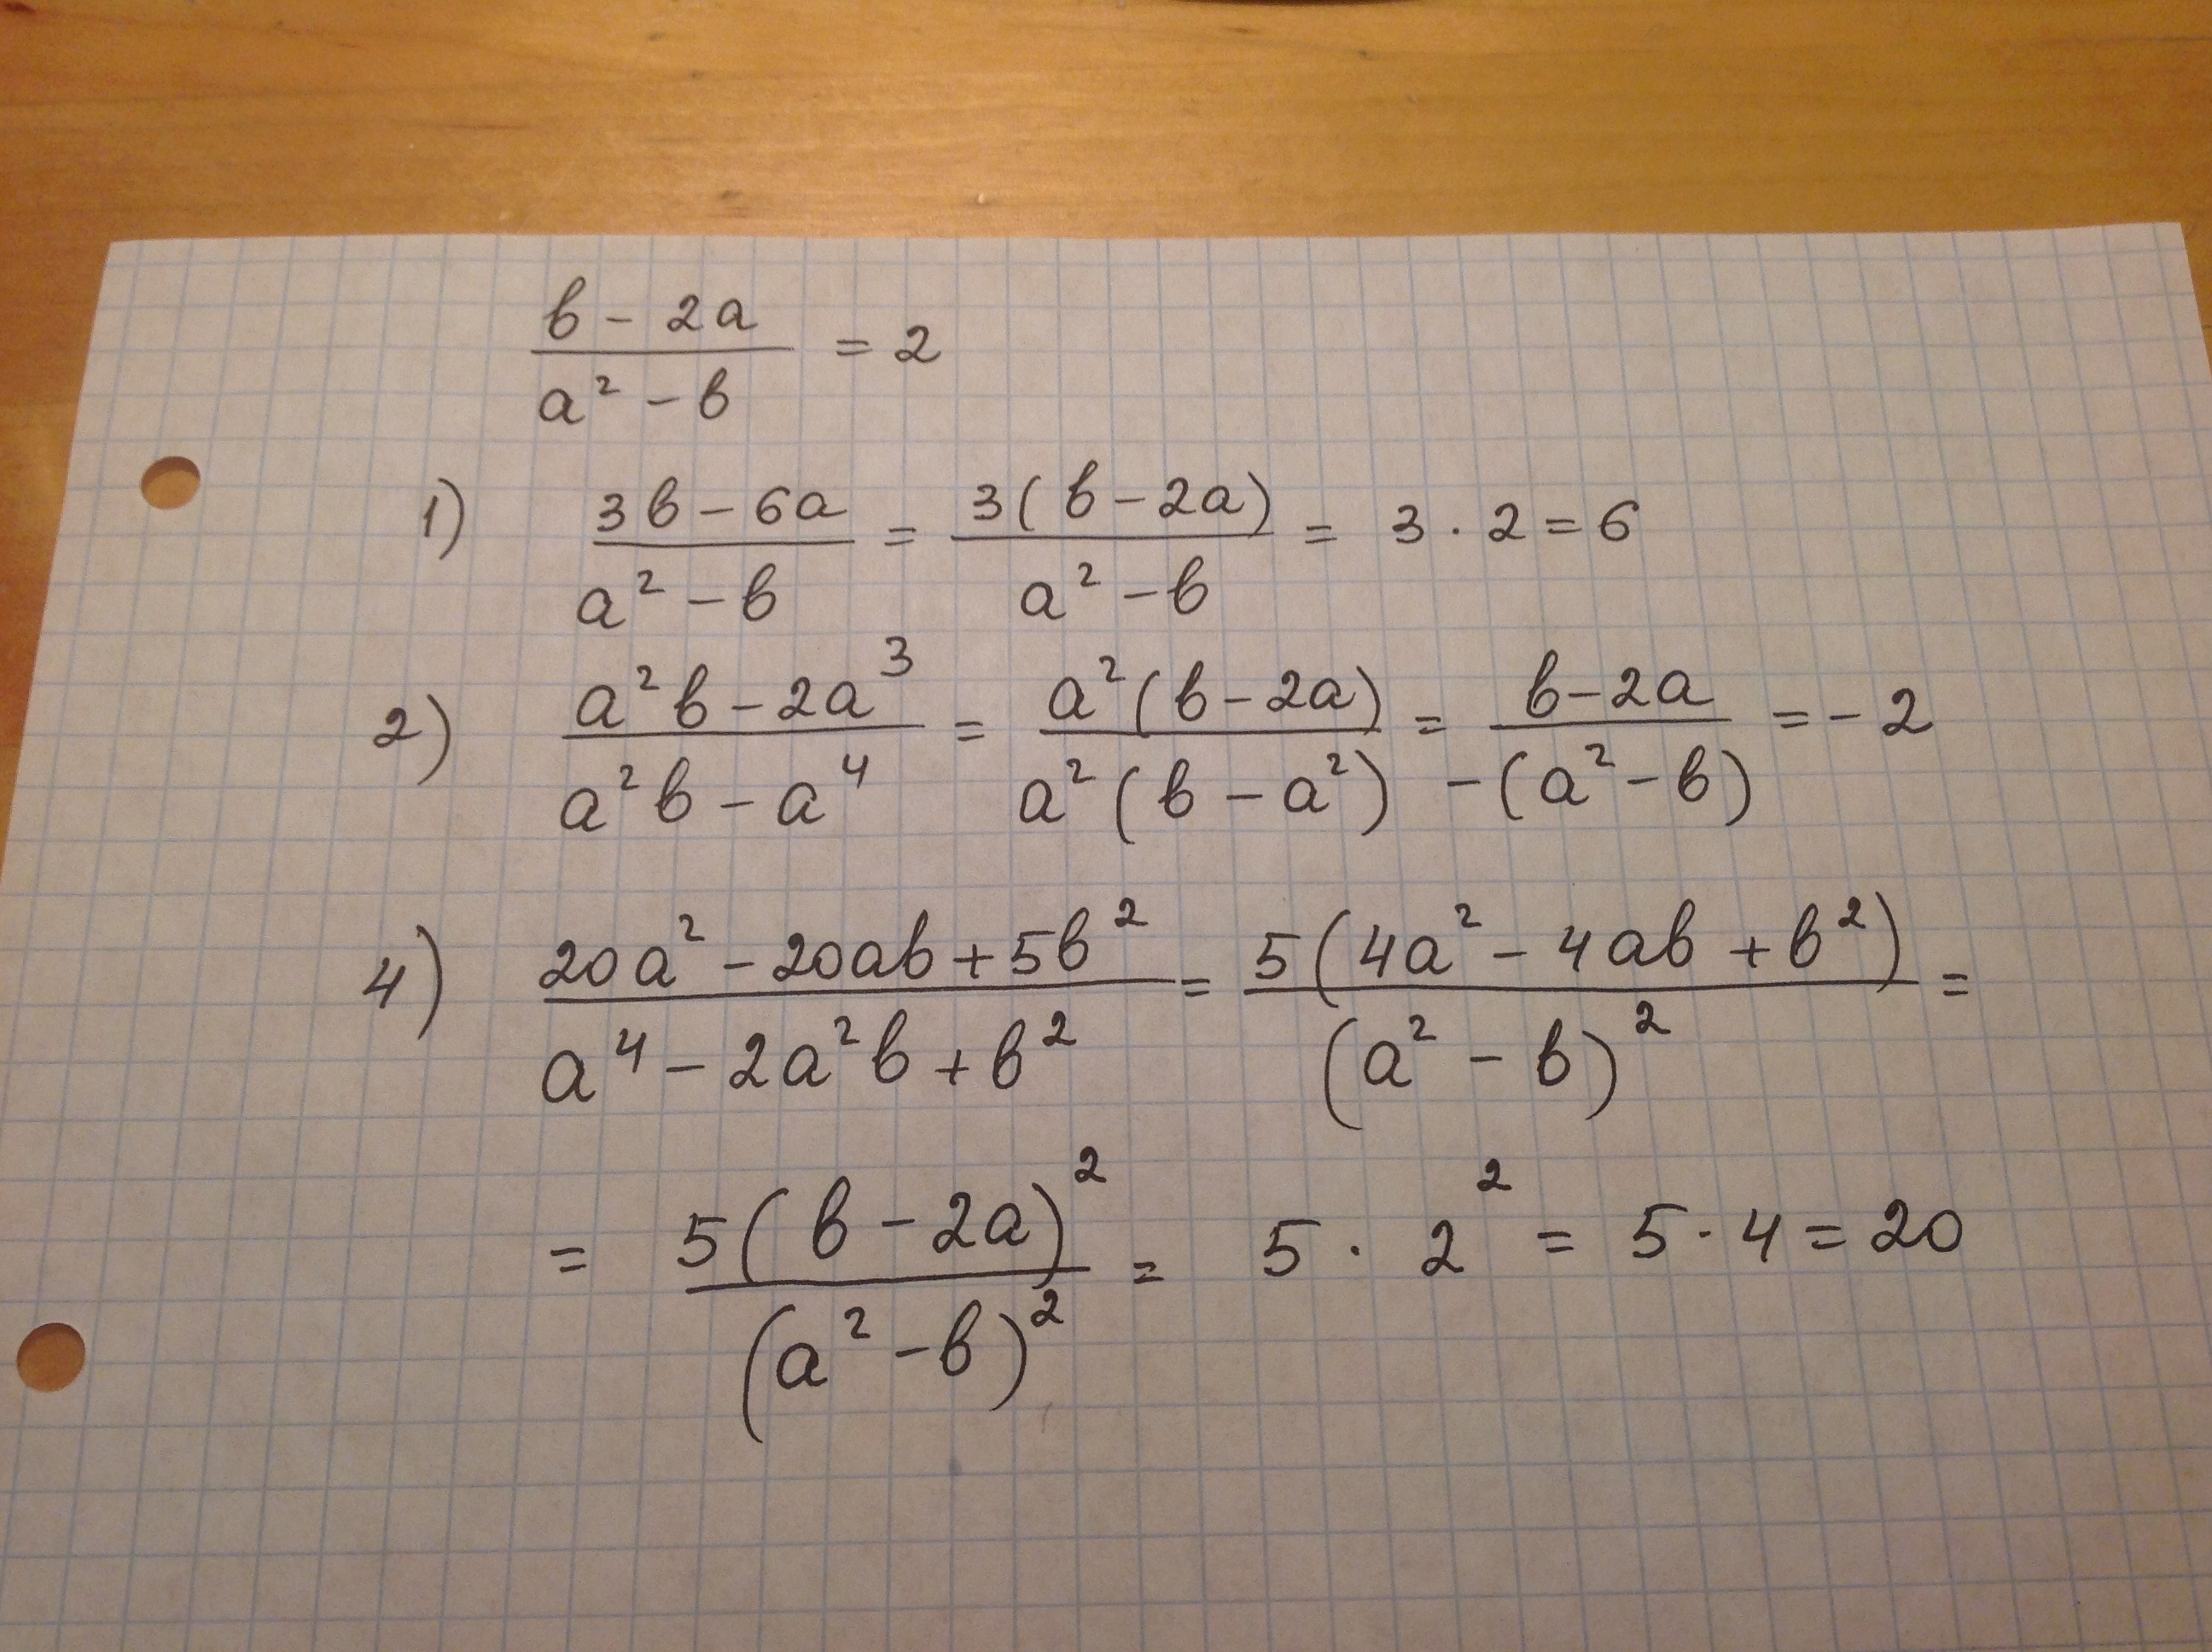 (b - 2a)/(a² - b) = 2
1) (3b - 6a)/(a² - b) = 3(b - 2a)/(a² - b) = 3 · 2 = 6
2) (a²b - 2a³)/(a²b - a⁴) = a²(b - 2a)/a²(b - a²) = (b - 2a)/-(a² - b) = - 2
4) (20a² - 20ab + 5b²)/(a⁴ - 2a²b + b²) = 5(4a² - 4ab + b²)/(a² - b)² =
= 5(b - 2a)²/(a² - b)² = 5 · 2² = 5 · 4 = 20